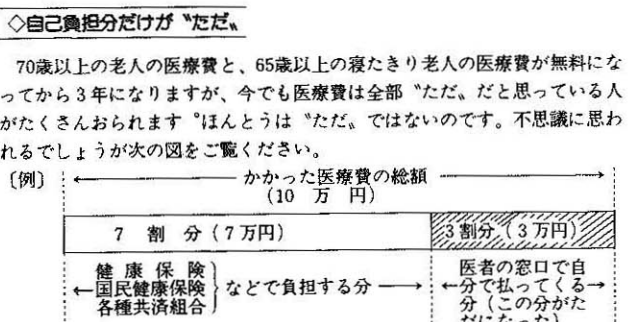 ◇自己負担分だけが〝ただ〟
70歳以上の老人の医療費と、65歳以上の寝たきり老人の医療費が無料にな
ってから3年になりますが、今でも医療費は全部〝ただ〟だと思っている人
がたくさんおられます。ほんとうは〝ただ〟ではないのです。不思議に思わ
れるでしょうが次の図をご覧ください。
〔例〕 かかった医療費の総額
(10 万 円)
7 割 分(7万円) 3割分(3万円)
健康保険
国民健康保険
各種共済組合
などで負担する分
医者の窓口で自
分で払ってくる
分(この分がた
だになった)